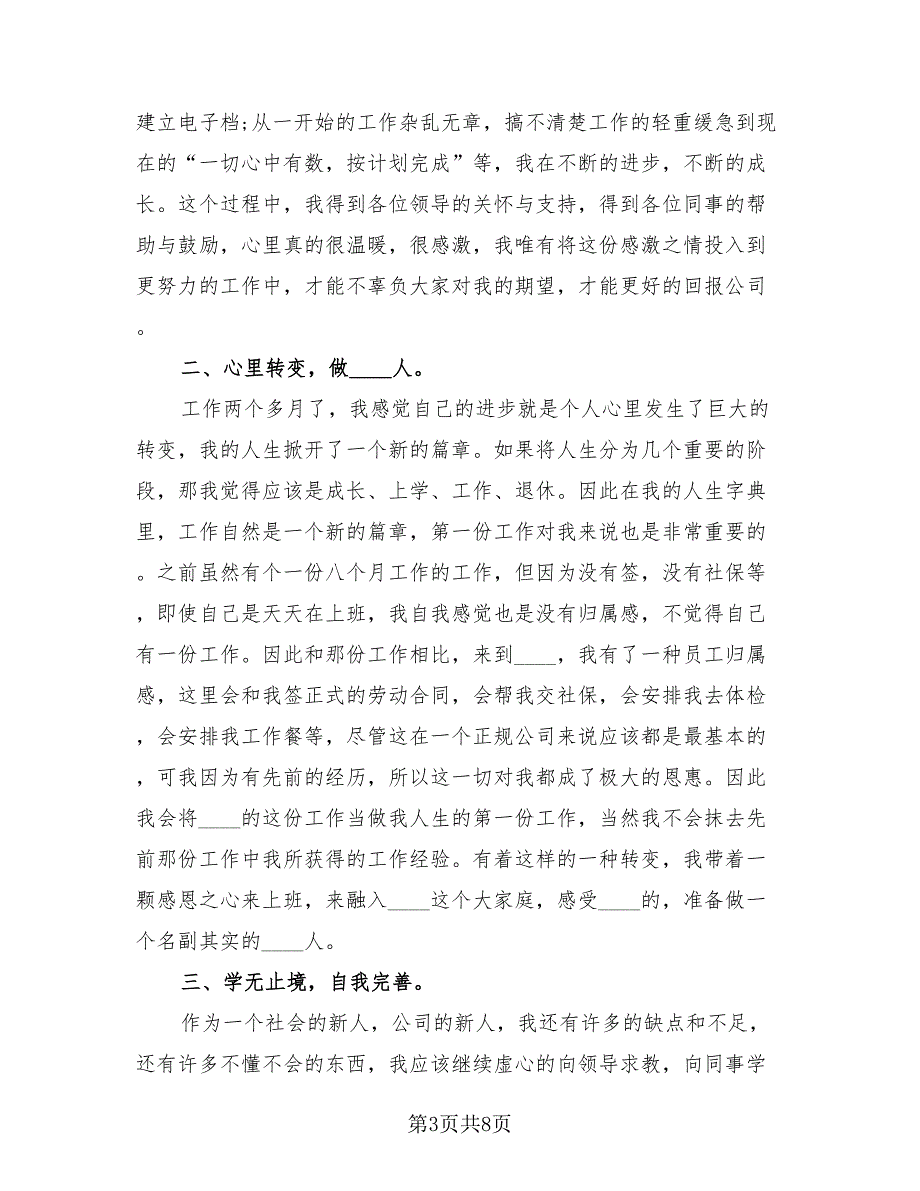 建立电子档;从一开始的工作杂乱无章，搞不清楚工作的轻重缓急到现
在的“一切心中有数，按计划完成”等，我在不断的进步，不断的成
长。这个过程中，我得到各位领导的关怀与支持，得到各位同事的帮
助与鼓励，心里真的很温暖，很感激，我唯有将这份感激之情投入到
更努力的工作中，才能不辜负大家对我的期望，才能更好的回报公司
。
二、心里转变，做____人。
工作两个多月了，我感觉自己的进步就是个人心里发生了巨大的
转变，我的人生掀开了一个新的篇章。如果将人生分为几个重要的阶
段，那我觉得应该是成长、上学、工作、退休。因此在我的人生字典
里，工作自然是一个新的篇章，第一份工作对我来说也是非常重要的
。之前虽然有个一份八个月工作的工作，但因为没有签，没有社保等
，即使自己是天天在上班，我自我感觉也是没有归属感，不觉得自己
有一份工作。因此和那份工作相比，来到____，我有了一种员工归属
感，这里会和我签正式的劳动合同，会帮我交社保，会安排我去体检
，会安排我工作餐等，尽管这在一个正规公司来说应该都是最基本的
，可我因为有先前的经历，所以这一切对我都成了极大的恩惠。因此
我会将____的这份工作当做我人生的第一份工作，当然我不会抹去先
前那份工作中我所获得的工作经验。有着这样的一种转变，我带着一
颗感恩之心来上班，来融入____这个大家庭，感受____的，准备做一
个名副其实的____人。
三、学无止境，自我完善。
作为一个社会的新人，公司的新人，我还有许多的缺点和不足，
还有许多不懂不会的东西，我应该继续虚心的向领导求教，向同事学
第3页共8页